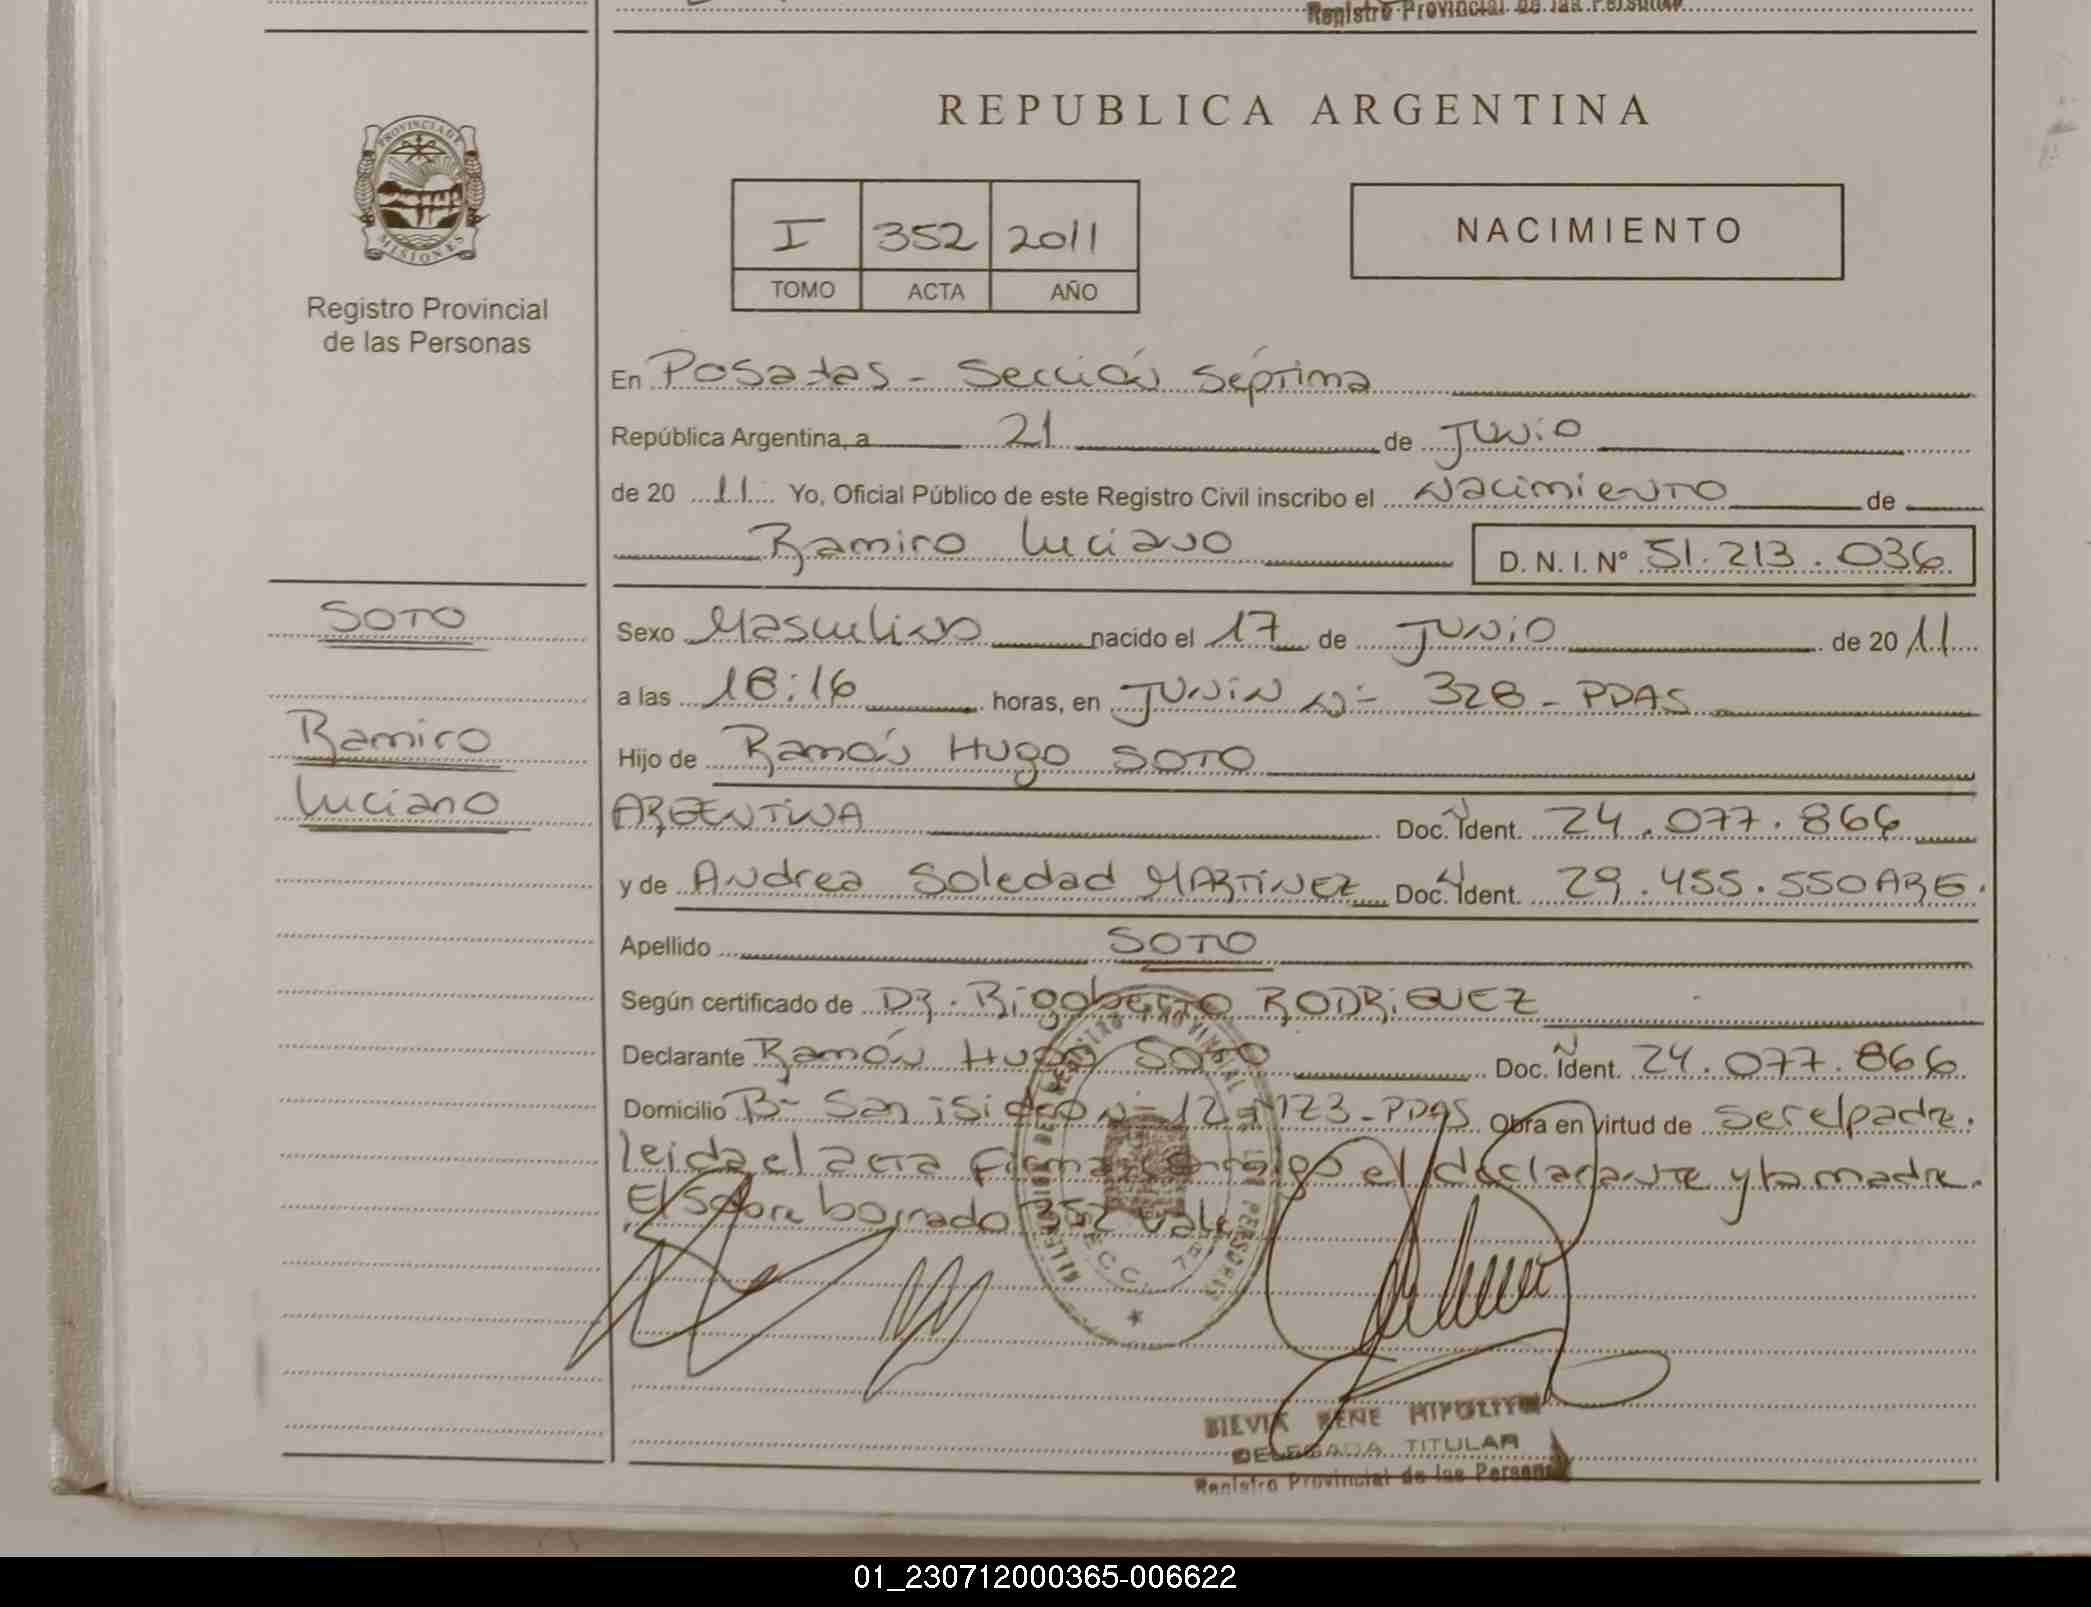 Registro Provincial de las Persona
PROVINCIA DE
MISIONES
Registro Provincial
de las Personas
REPUBLICA ARGENTINA
I 352 2011
TOMO ACTA AÑO
NACIMIENTO
En Posadas - Sección Séptima
República Argentina, a 21 de Junio
de 20 11 Yo, Oficial Público de este Registro Civil inscribo el Nacimiento de
Ramiro Luciano D. N. I. Nº 51.213.036
SOTO
Ramiro
Luciano
Sexo Masculino nacido el 17 de Junio de 20 11
a las 18:16 horas, en JUNIN Nº 328 - PDAS
Hijo de Ramón Hugo SOTO
ARGENTINA Doc. Ident. 24.077.866
y de Andrea Soledad MARTINEZ Doc. Ident. 29.455.550 ARG.
Apellido SOTO
Según certificado de DR. Rigoberto RODRIGUEZ
Declarante Ramón Hugo SOTO Doc. Ident. 24.077.866
Domicilio Bº San isidro PDAS Obra en virtud de ser el padre.
leida el acta firman conmigo el declarante y la madre.
El sobre borrado 352 vale
SILVIA RENE HIPOLITO
DELEGADA TITULAR
Registro Provincial de las Persona
01_230712000365-006622